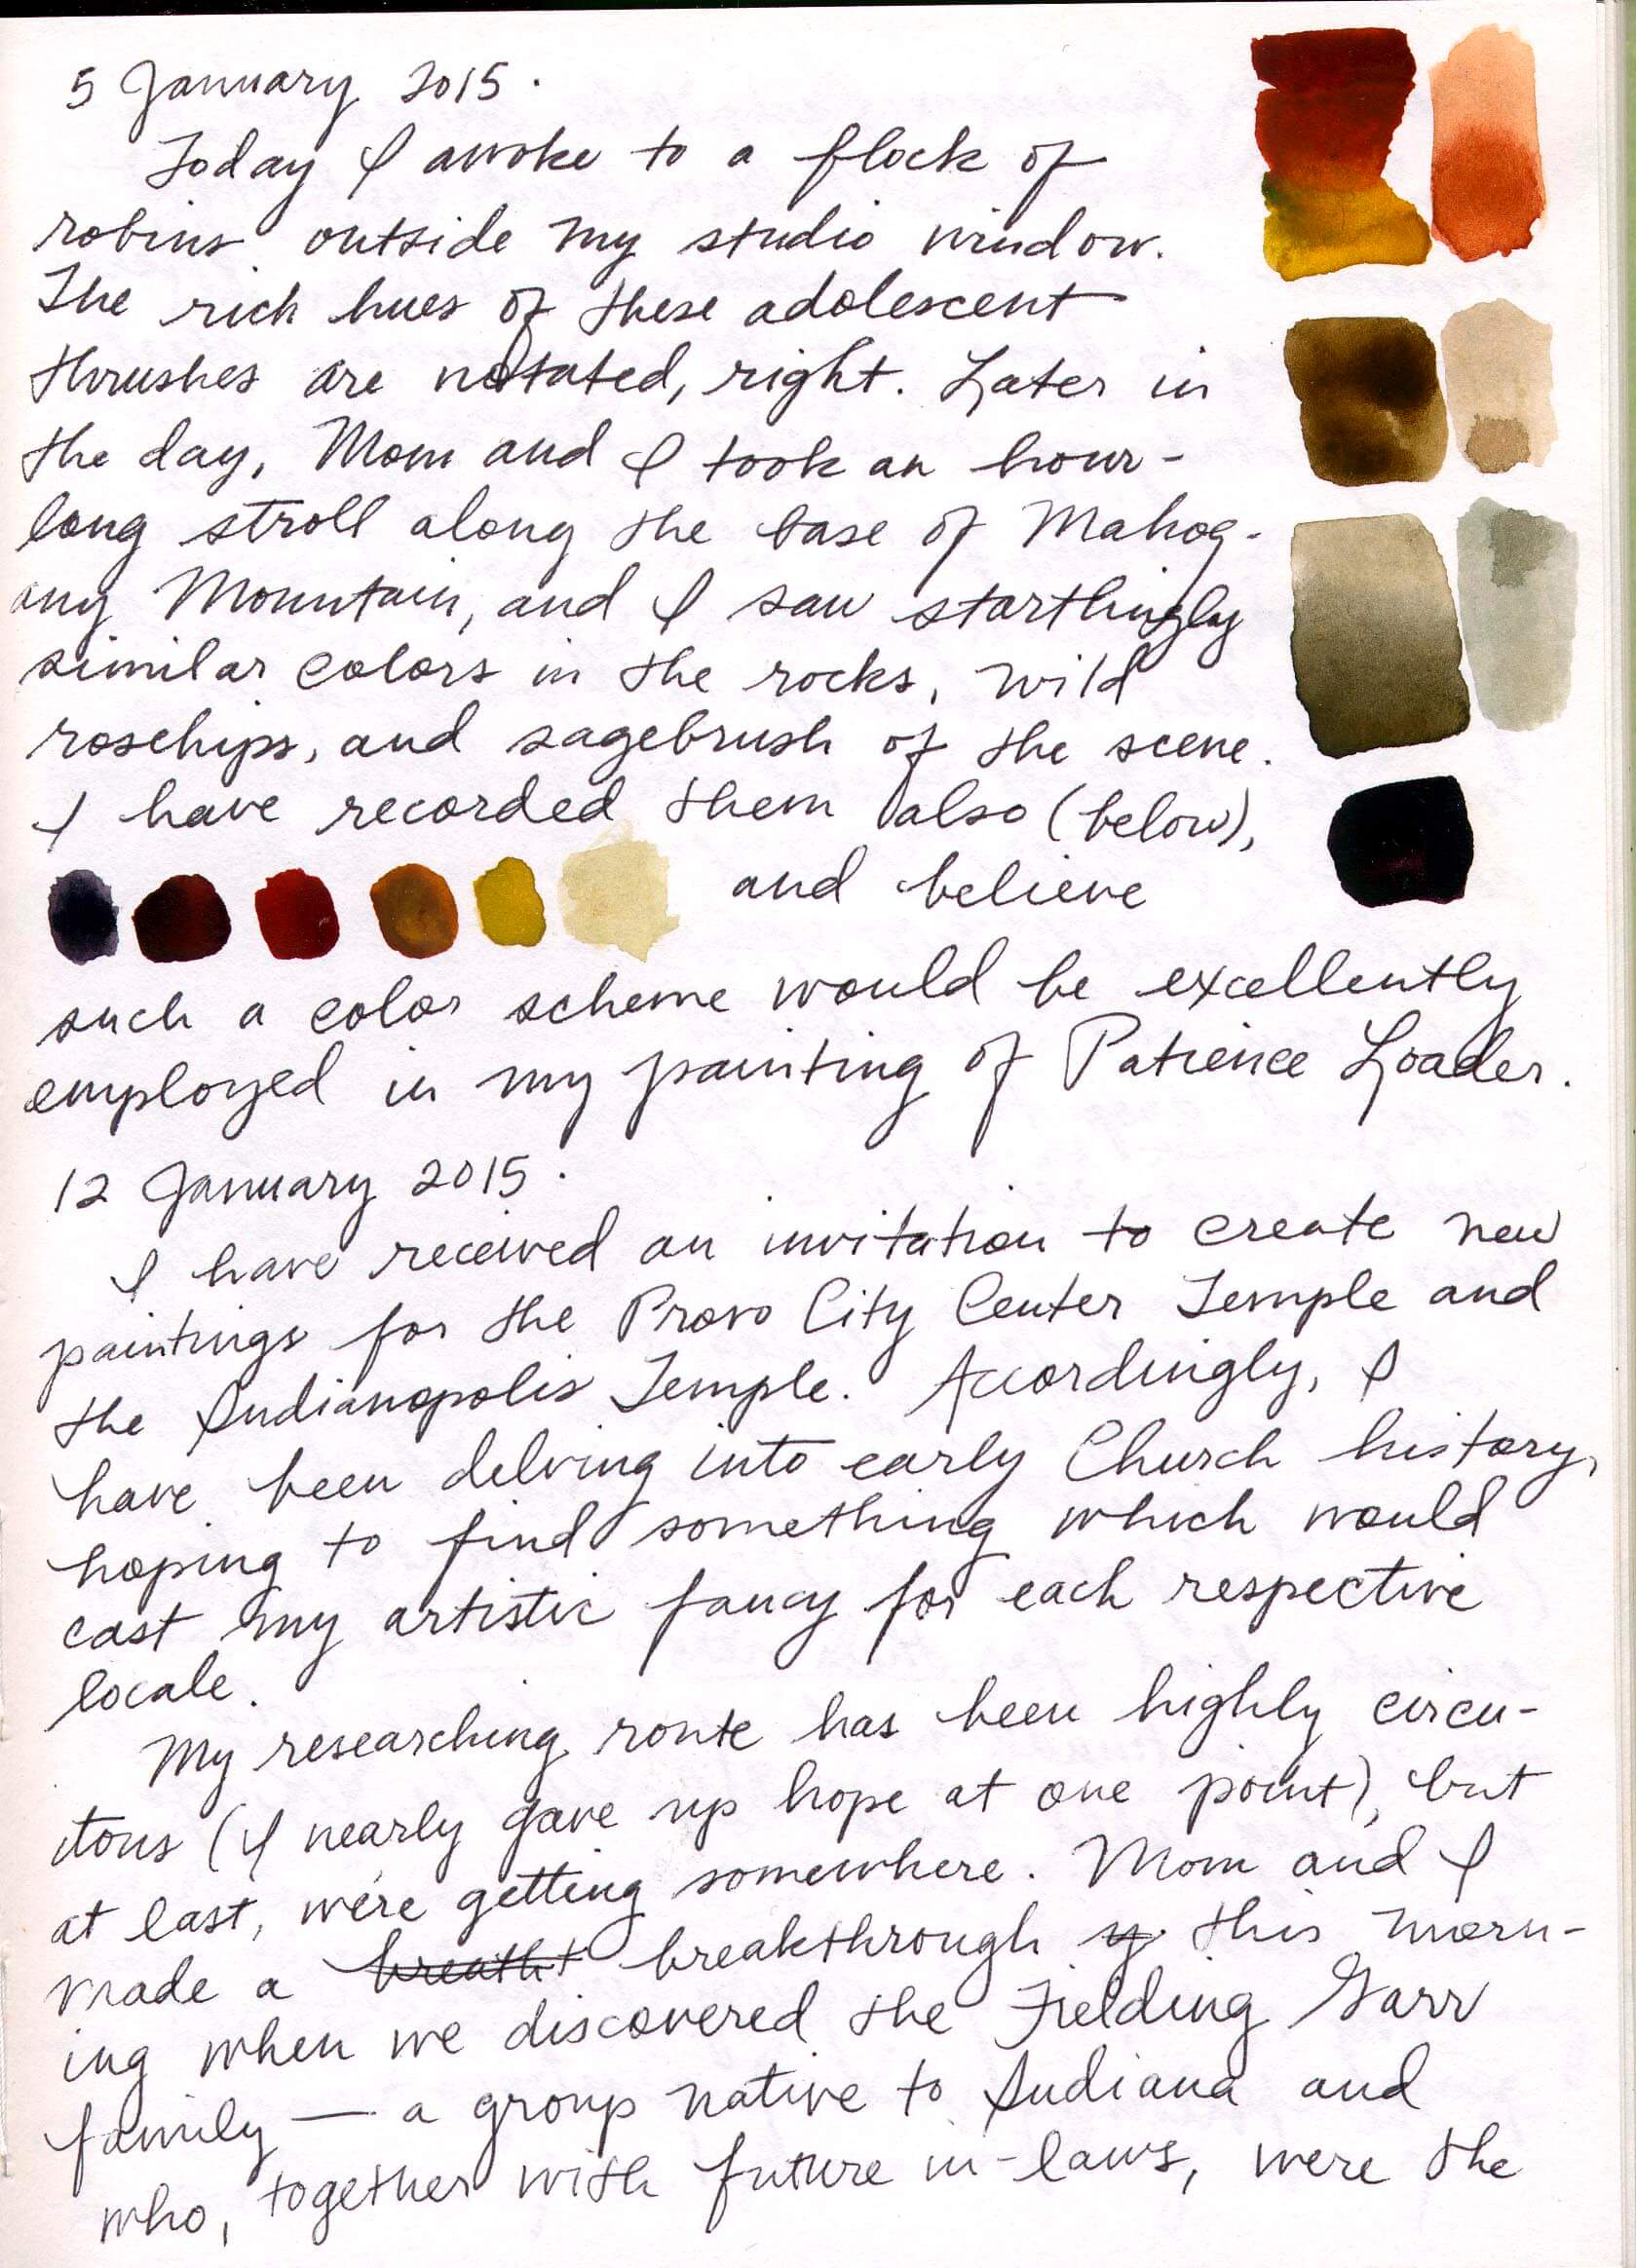 5 January 2015.
Today I awoke to a flock of
robins outside my studio window.
The rich hues of these adolescent
thrushes are notated, right. Later in
the day, Mom and I took an hour-
long stroll along the base of Mahog-
any Mountain, and I saw startlingly
similar colors in the rocks, wild
rosehips, and sagebrush of the scene.
I have recorded them also (below),
and believe
such a color scheme would be excellently
employed in my painting of Patience Loader.
12 January 2015.
I have received an invitation to create new
paintings for the Provo City Center Temple and
the Indianopolis Temple. Accordingly, I
have been delving into early Church history,
hoping to find something which would
cast my artistic fancy for each respective
locale.
My researching route has been highly circu-
itous (I nearly gave up hope at one point), but
at last, we're getting somewhere. Mom and I
made a breakthrough this morn-
ing when we discovered the Fielding Garr
family — a group native to Indiana and
who, together with future in-laws, were the